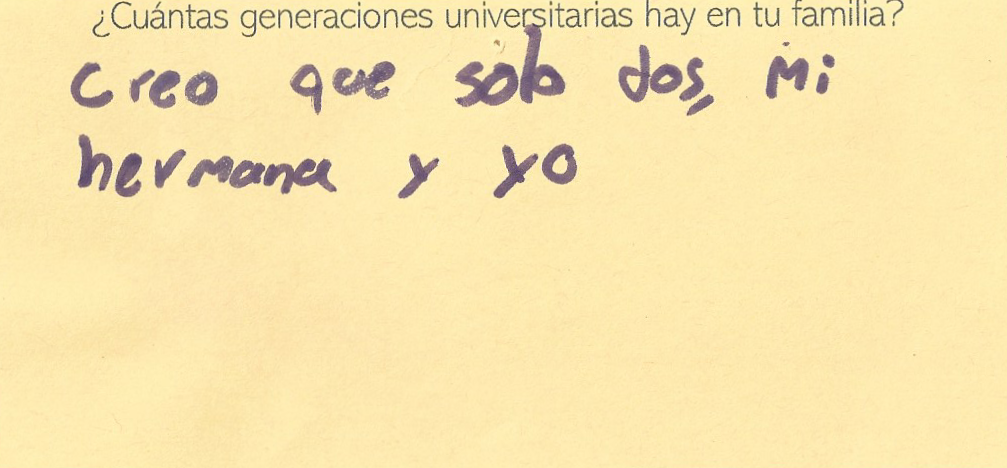 ¿Cuántas generaciones universitarias hay en tu familia?
Creo que solo dos, mi
hermana y yo